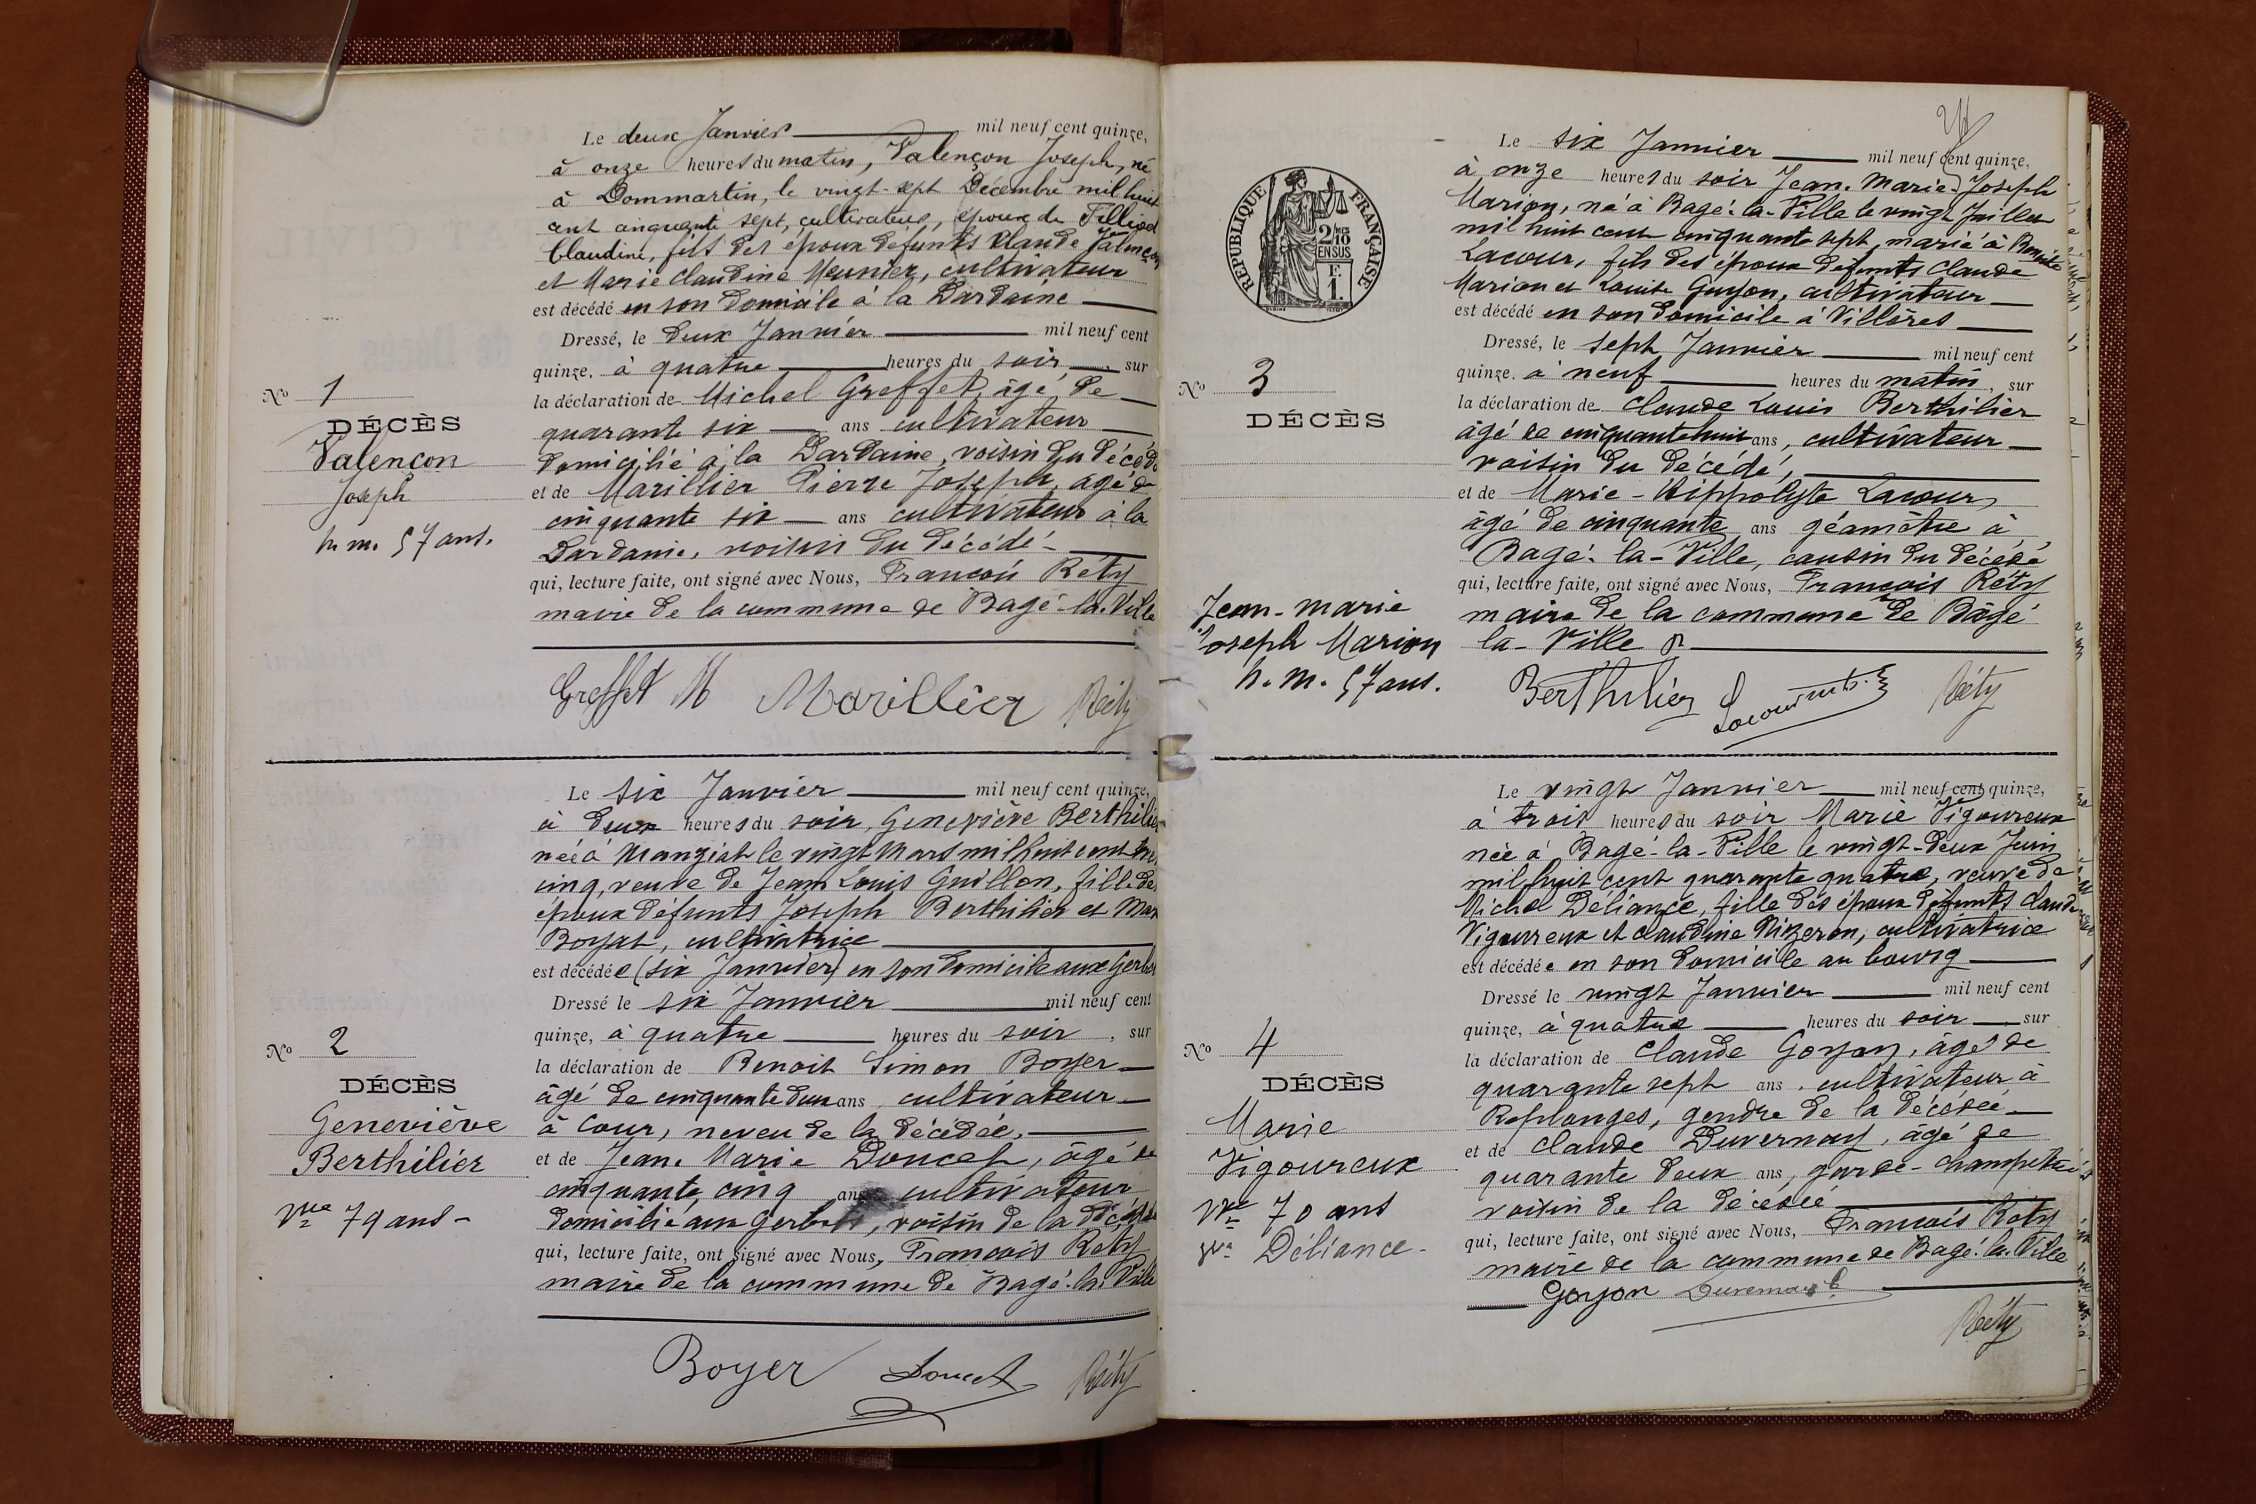 Le deux Janvier mil neuf cent quinze,
à onze heures du matin, Valençon Joseph, né
à Dommartin, le vingt-sept Décembre mil huit
cent cinquante sept, cultivateur, époux de
Claudine, fils des époux défunts Claude Valençon
et Marie Claudine Meunier, cultivateur
est décédé en son domicile à la Dardaine
Dressé, le deux Janvier mil neuf cent
quinze. à quatre heures du soir, sur
la déclaration de Michel Greffet, âgé de
quarante six ans cultivateur
domicilié à la Dardaine, voisin du décédé
et de Marillier Pierre Joseph, âgé de
cinquante six ans cultivateur à la
Dardanie, voisin du décédé
qui, lecture faite, ont signé avec Nous, François Réty
maire de la commune de Bagé-la-Ville
No 1
DÉCÈS
Valençon
Joseph
h. m. 57 ans.
Greffet M Marillier Réty
Le six Janvier mil neuf cent quinze,
à deux heures du soir, Geneviève Berthilier
née à Manziat le vingt Mars mil huit cent
cinq, veuve de Jean Louis Guillon, fille des
époux défunts Joseph Berthilier et
Boyat, cultivatrice
est décédée (six Janvier) en son domicile aux
Dressé le six Janvier mil neuf cent
quinze, à quatre heures du soir, sur
la déclaration de Benoit Simon Boyer
âgé de cinquante deux ans cultivateur
à Cour, neveu de la décédée,
et de Jean Marie Doucet, âgé de
cinquante cinq ans cultivateur
domicilié aux, voisin de la décédée
qui, lecture faite, ont signé avec Nous, François Réty
maire de la commune de Bagé-la-Ville
No 2
DÉCÈS
Geneviève
Berthilier
Vve 79 ans
Boyer Doucet Réty
RÉPUBLIQUE FRANÇAISE
2/10 EN SUS
F.
1.
Le six Janvier mil neuf cent quinze,
à onze heures du soir Jean-Marie-Joseph
Marion, né à Bagé-la-Ville le vingt Juillet
mil huit cent cinquante sept, marié à
Lacour, fils des époux défunts Claude
Marion et Louise Guyon, cultivateur
est décédé en son domicile à Villères
Dressé, le sept Janvier mil neuf cent
quinze. à neuf heures du matin, sur
la déclaration de Claude Louis Berthilier
âgé de cinquante huit ans, cultivateur
voisin du décédé,
et de Marie-Hippolyte Lacour,
âgé de cinquante ans géomètre à
Bagé-la-Ville, cousin du décédé
qui, lecture faite, ont signé avec Nous, François Réty
maire de la commune de Bâgé
la-Ville
No 3
DÉCÈS
Jean-Marie
Joseph Marion
h. m. 57 ans.
Berthilier Lacour Réty
Le vingt Janvier mil neuf cent quinze,
à trois heures du soir Marie Vigoureux
née à Bagé-la-Ville le vingt-deux Juin
mil huit cent quarante quatre, veuve de
Michel Déliance, fille des époux défunts Claude
Vigoureux et Claudine Nizeron, cultivatrice
est décédée en son domicile au bourg
Dressé le vingt Janvier mil neuf cent
quinze, à quatre heures du soir sur
la déclaration de Claude Goyon, âgé de
quarante sept ans, cultivateur à
Replonges, gendre de la décédée
et de Claude Duvernay, âgé de
quarante deux ans, garde-champêtre
voisin de la décédée
qui, lecture faite, ont signé avec Nous, François Réty
maire de la commune de Bagé-la-Ville
No 4
DÉCÈS
Marie
Vigoureux
Vve 70 ans
Vve Déliance
Goyon Duvernay C
Réty